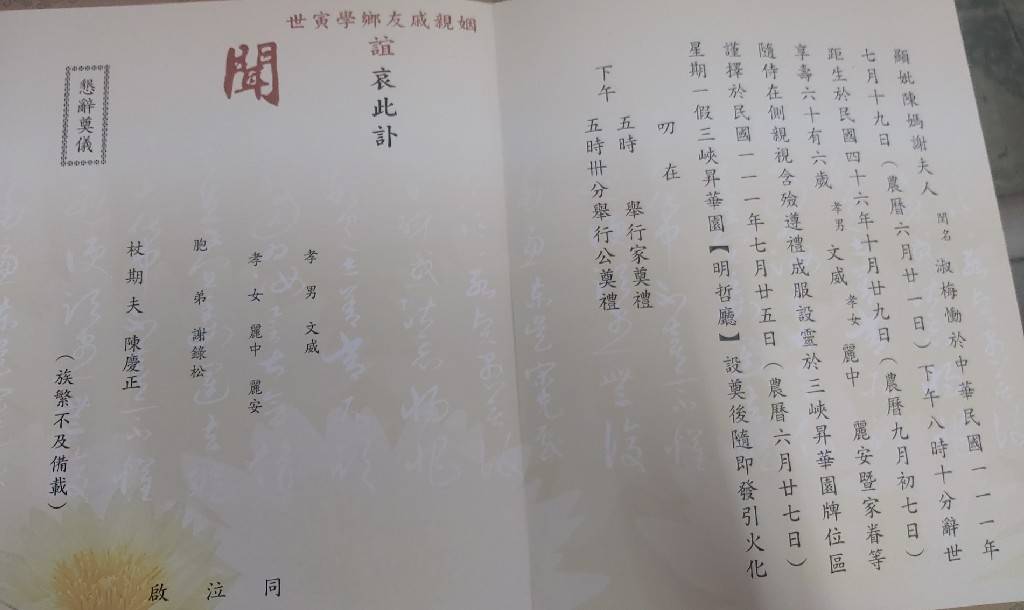 顯妣陳媽謝夫人 閨名 淑梅慟於中華民國一一一年
七月十九日（農曆六月廿一日）下午八時十分辭世
距生於民國四十六年十月廿九日（農曆九月初七日）
享壽六十有六歲 孝男 文威 孝女 麗中 麗安暨家眷等
隨侍在側親視含殮遵禮成服設靈於三峽昇華園牌位區
謹擇於民國一一一年七月廿五日（農曆六月廿七日）
星期一假三峽昇華園【明哲廳】設奠後隨即發引火化
叨在
五時 舉行家奠禮
下午
五時卅分舉行公奠禮
姻親戚友鄉學寅世
誼哀此訃
聞
懇辭奠儀
孝男 文威
孝女 麗中 麗安
胞弟 謝錄松
杖期夫 陳慶正
（族繁不及備載）
同泣啟